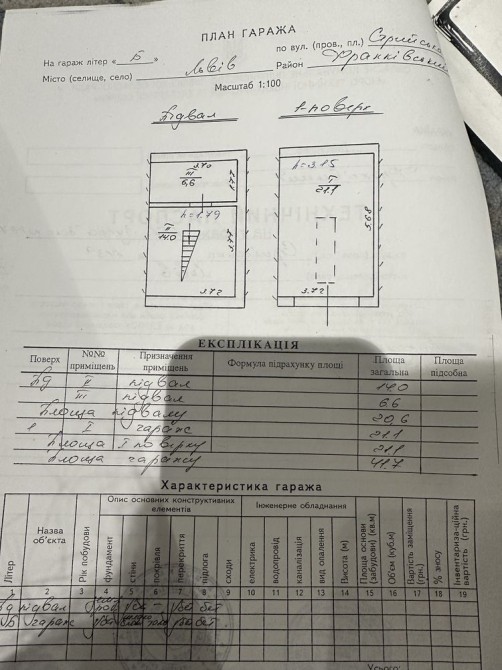 ПЛАН ГАРАЖА
На гараж літер « Б » по вул. (пров., пл.) Стрийська
Місто (селище, село) Львів Район Франківський
Масштаб 1:100
Підвал
1-поверх
3.70
III
6,6
h=1.79
II
14.0
3.72
h=3.15
I
21.1
5.68
3.72
ЕКСПЛІКАЦІЯ
Поверх №№ приміщень Призначення приміщень Формула підрахунку площі Площа загальна Площа підсобна
Пд II підвал 14.0
III підвал 6.6
Площа підвалу 20,6
1 I гараж 21.1
Площа I поверху 21.1
Площа гаражу 41.7
Характеристика гаража
Літер
Назва об'єкта
Рік побудови
Опис основних конструктивних елементів
фундамент
стіни
покрівля
перекриття
підлога
сходи
Інженерне обладнання
електрика
водопровід
каналізація
вид опалення
Висота (м)
Площа основи (забудови) (кв.м)
Об'єм (куб.м)
Вартість заміщення (грн.)
% зносу
Інвентаризаційна вартість (грн.)
1 2 3 4 5 6 7 8 9 10 11 12 13 14 15 16 17 18 19
Пд підвал
Б гараж
Усього: